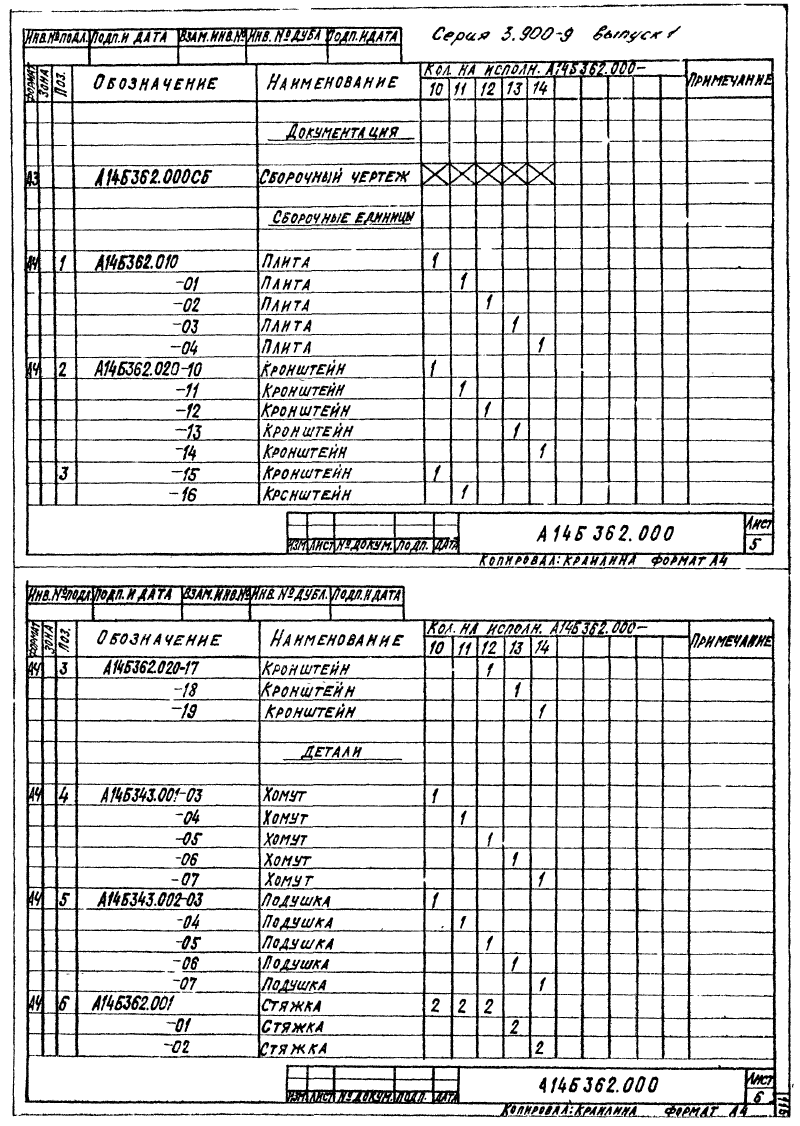 Серия 3.900-9 выпуск 1
Инв.№ подл. Подп. и дата Взам. инв.№ Инв. № дубл. Подп. и дата
Формат Зона Поз. Обозначение Наименование Кол. на исполн. А14Б362.000— Примечание
10 11 12 13 14
Документация
А3 А14Б362.000СБ Сборочный чертеж
Сборочные единицы
А4 1 А14Б362.010 Плита 1
-01 Плита 1
-02 Плита 1
-03 Плита 1
-04 Плита 1
А4 2 А14Б362.020-10 Кронштейн 1
-11 Кронштейн 1
-12 Кронштейн 1
-13 Кронштейн 1
-14 Кронштейн 1
3 -15 Кронштейн 1
-16 Кронштейн 1
Изм. Лист № докум. Подп. Дата А14Б362.000 Лист 5
Копировал: Краилина Формат А4
Инв.№ подл. Подп. и дата Взам. инв.№ Инв. № дубл. Подп. и дата
Формат Зона Поз. Обозначение Наименование Кол. на исполн. А14Б362.000— Примечание
10 11 12 13 14
А4 3 А14Б362.020-17 Кронштейн 1
-18 Кронштейн 1
-19 Кронштейн 1
Детали
А4 4 А14Б343.001-03 Хомут 1
-04 Хомут 1
-05 Хомут 1
-06 Хомут 1
-07 Хомут 1
А4 5 А14Б343.002-03 Подушка 1
-04 Подушка 1
-05 Подушка 1
-06 Подушка 1
-07 Подушка 1
А4 6 А14Б362.001 Стяжка 2 2 2
-01 Стяжка 2
-02 Стяжка 2
Изм. Лист № докум. Подп. Дата А14Б362.000 Лист 6
Копировал: Краилина Формат А4